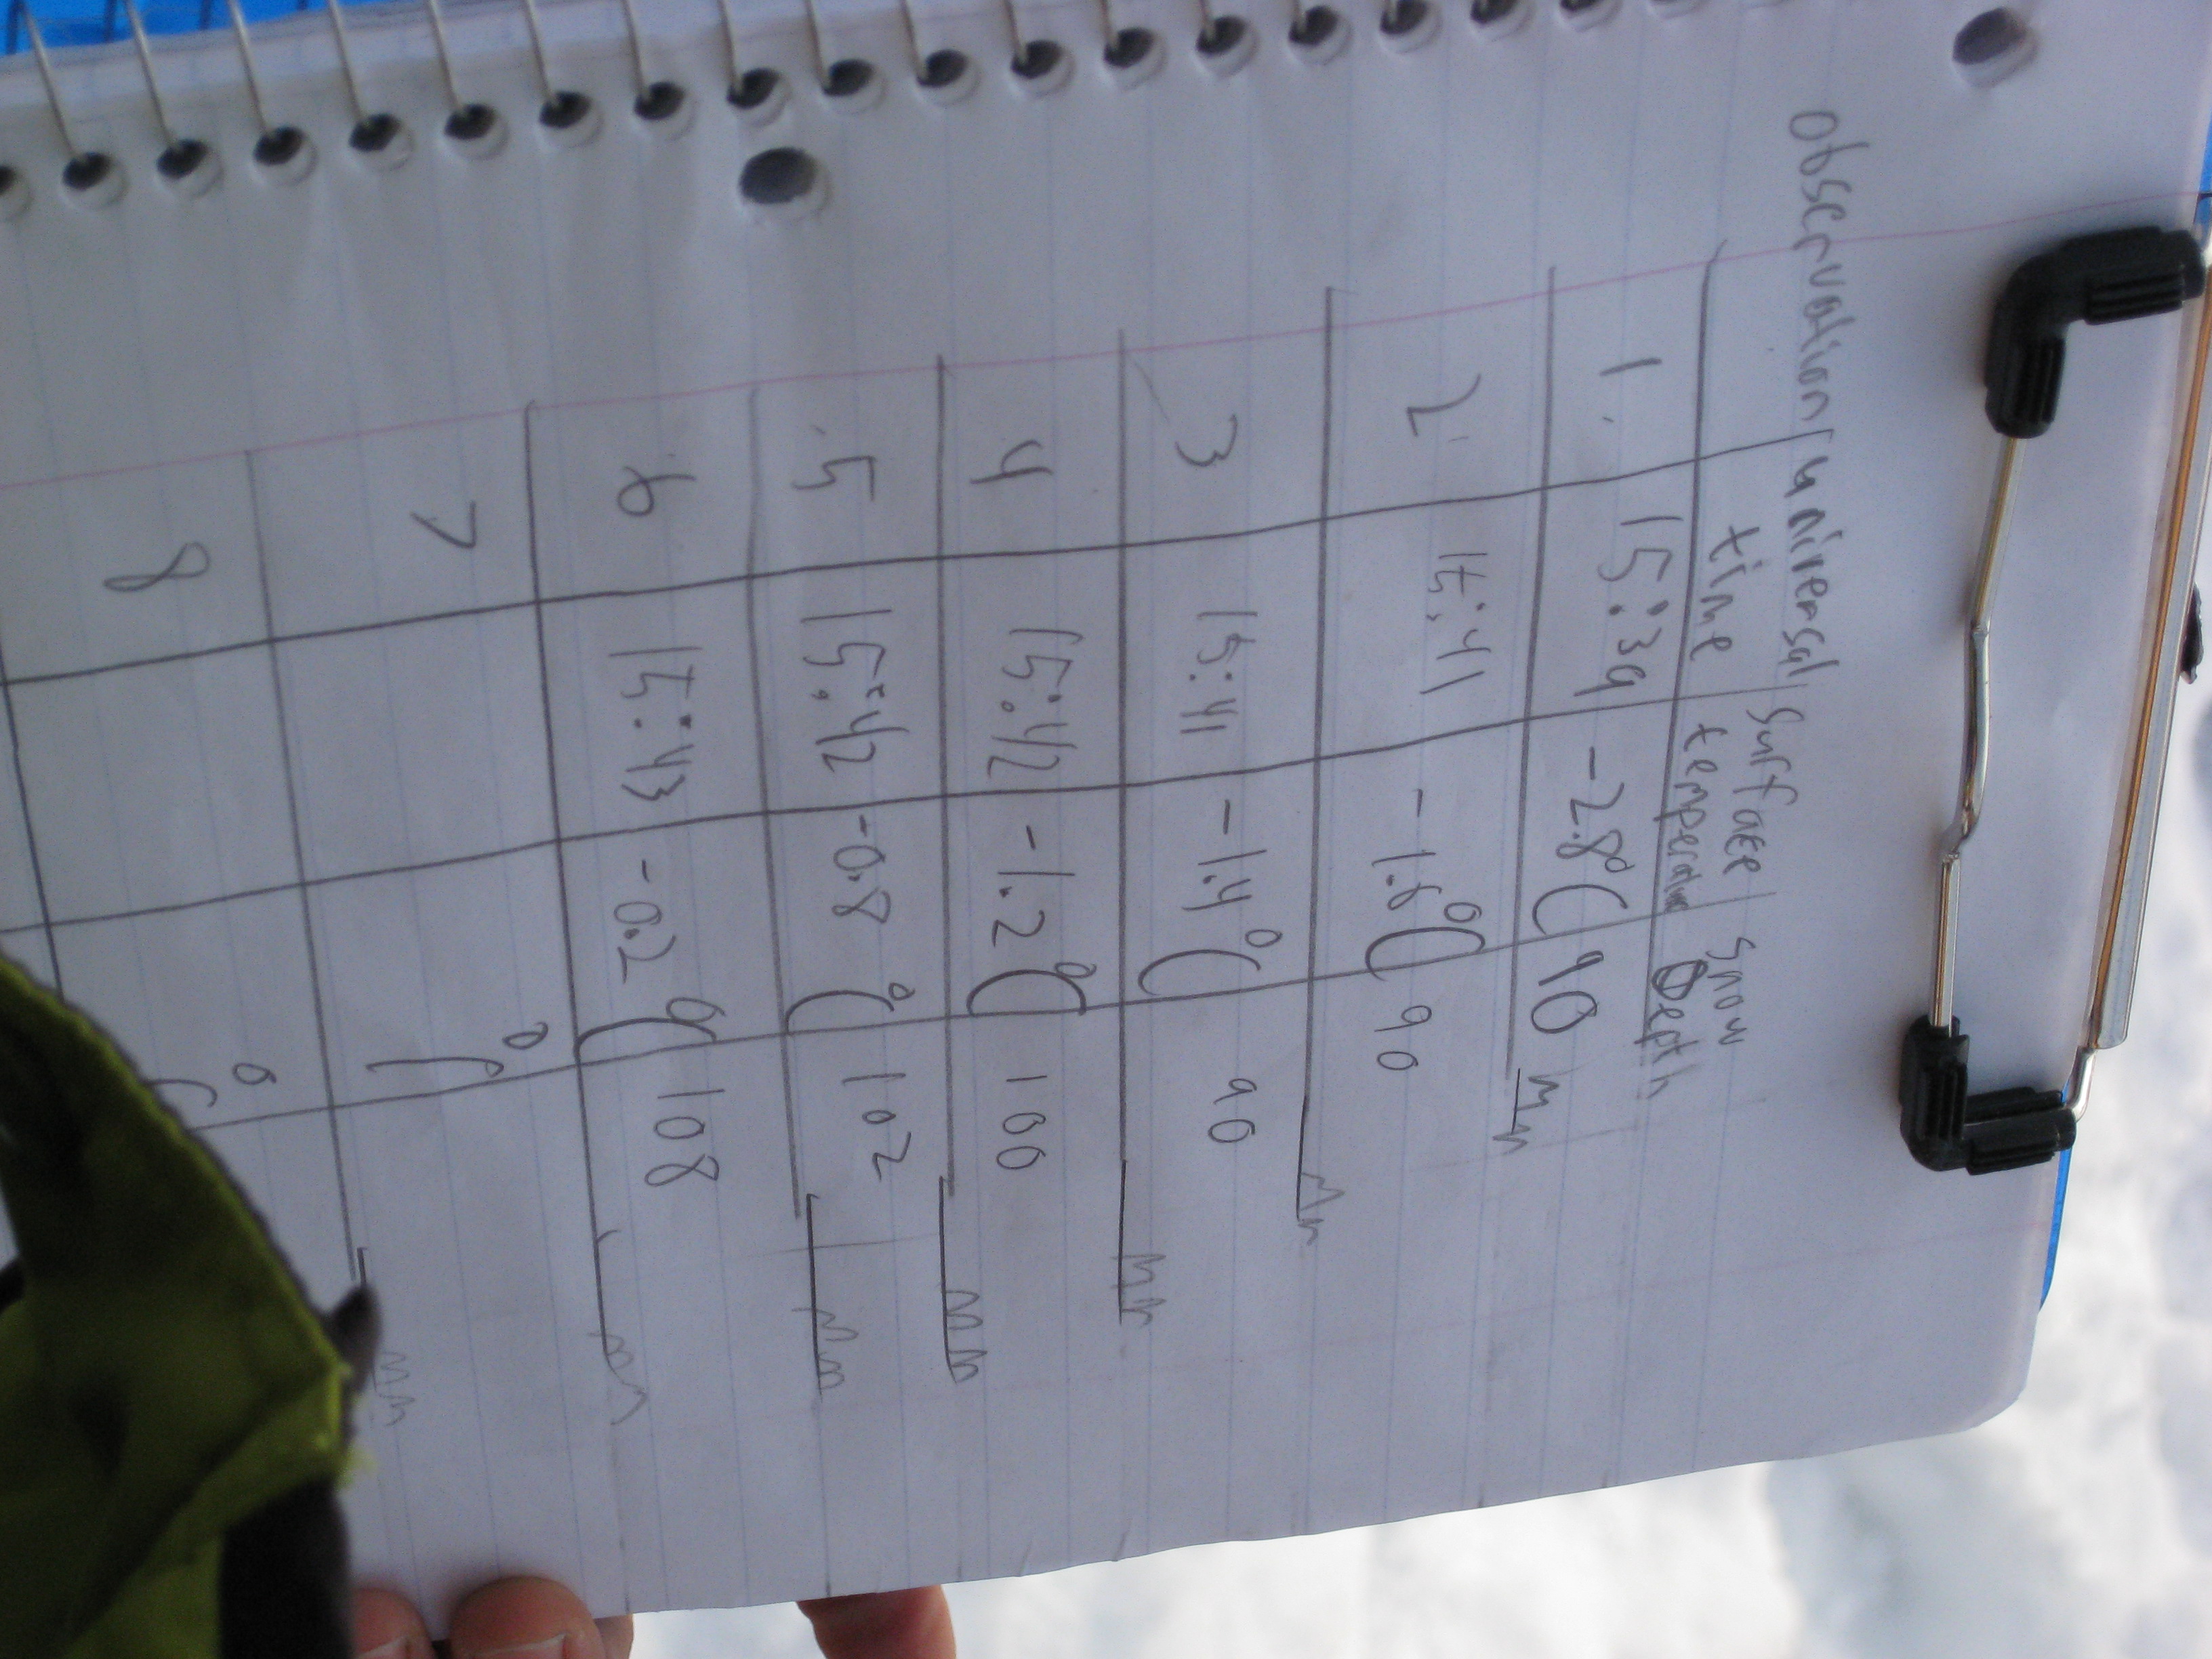 observation universal surface snow
time temperature Depth
1. 15:39 -2.8°C 90 mm
2. 15:41 -1.6°C 90 mm
3 15:41 -1.4°C 90 mm
4 15:42 -1.2°C 100 mm
5 15:42 -0.8°C 102 mm
6 15:43 -0.2°C 108 mm
7 °C mm
8 °C